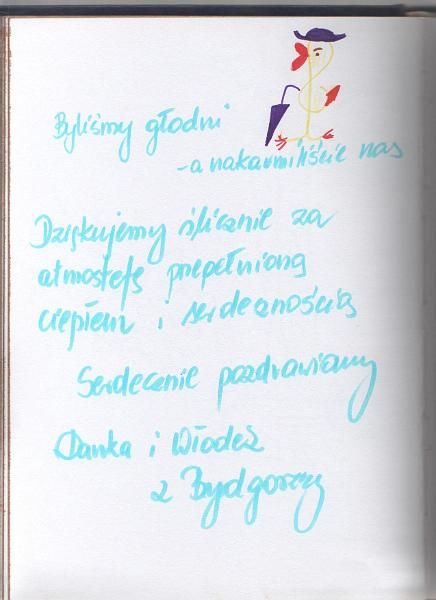 Byliśmy głodni
- a nakarmiliście nas
Dziękujemy ślicznie za
atmosferę przepełnioną
ciepłem i serdecznością
Serdecznie pozdrawiamy
Danka i Włodek
z Bydgoszczy